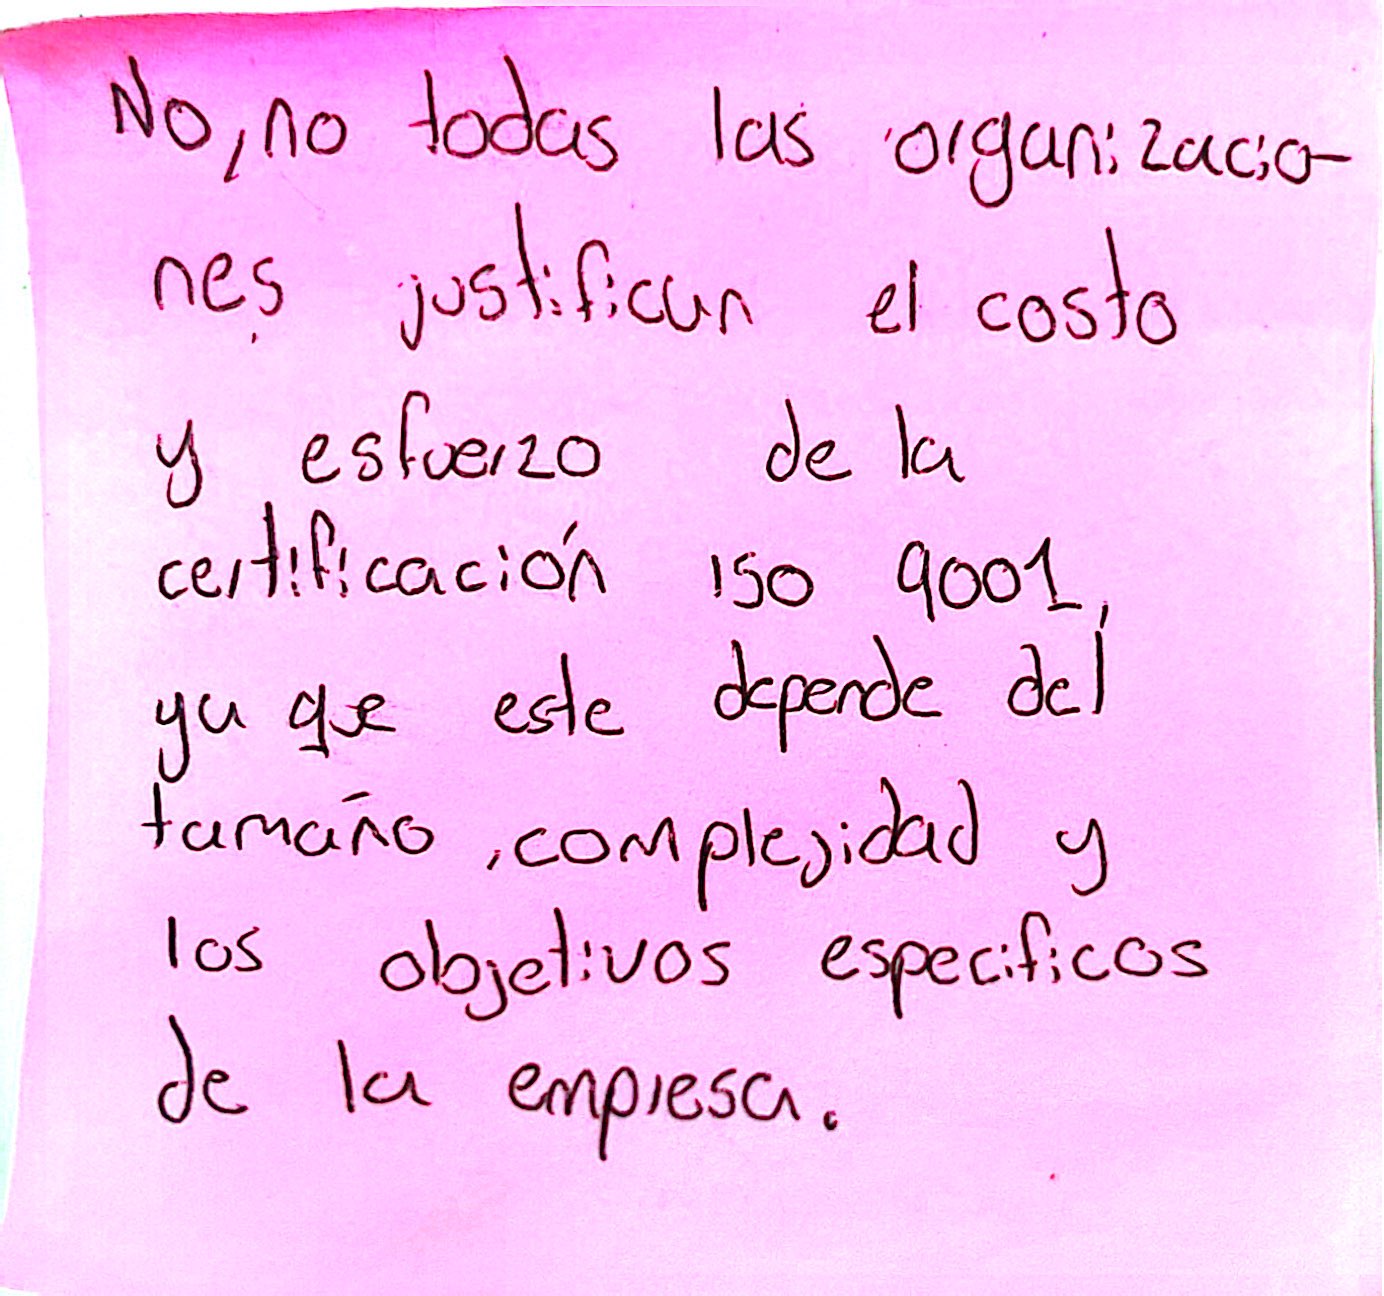 No, no todas las organizacio-
nes justifican el costo
y esfuerzo de la
certificación iso 9001,
ya que este depende del
tamaño, complejidad y
los objetivos especificos
de la empresa.